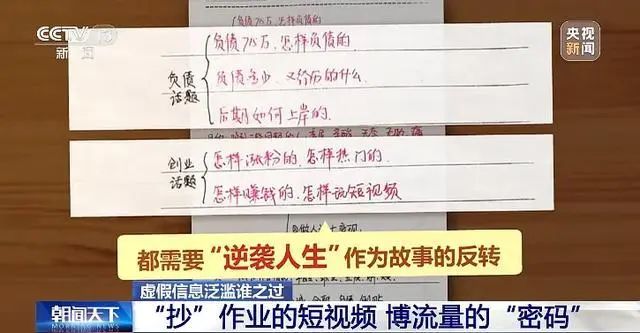 CCTV 13
新闻
央视
新闻
负债715万,怎样负债的
负债
话题
负债715万、怎样负债的、
负债多少、又经历的什么、
后期如何上岸的、
创业
话题
怎样涨粉的、怎样热门的、
怎样赚钱的、怎样玩短视频
都需要“逆袭人生”作为故事的反转
虚假信息泛滥谁之过
朝闻天下
“抄”作业的短视频 博流量的“密码”